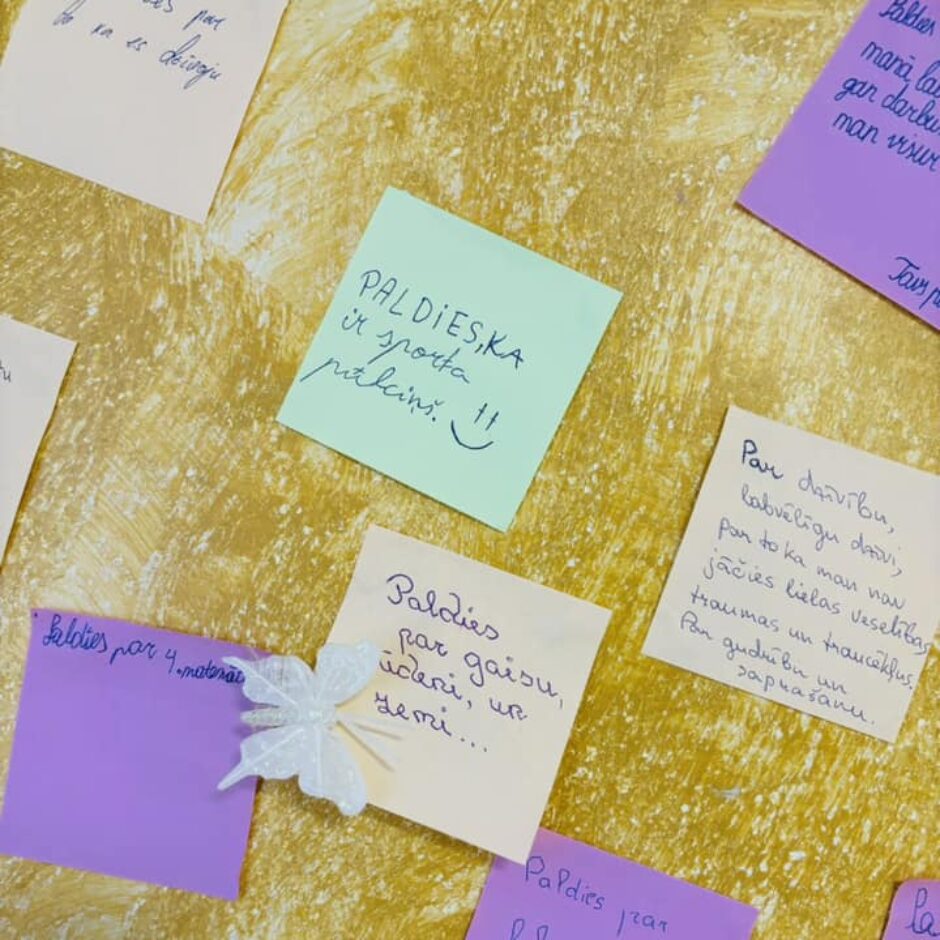 par
to ka es dzīvoju
Paldies
manā
gan darbu
man visur
PALDiES,KA
ir sporta
pulciņš.
Par dzīvību,
labvēlīgu dzīvi,
par to ka man nav
jācieš lielas veselības
traumas un traucēkļus.
Par gudrību un
saprašanu.
Paldies
par gaisu,
ūdeni, un
zemi...
Paldies par 4.
Paldies par